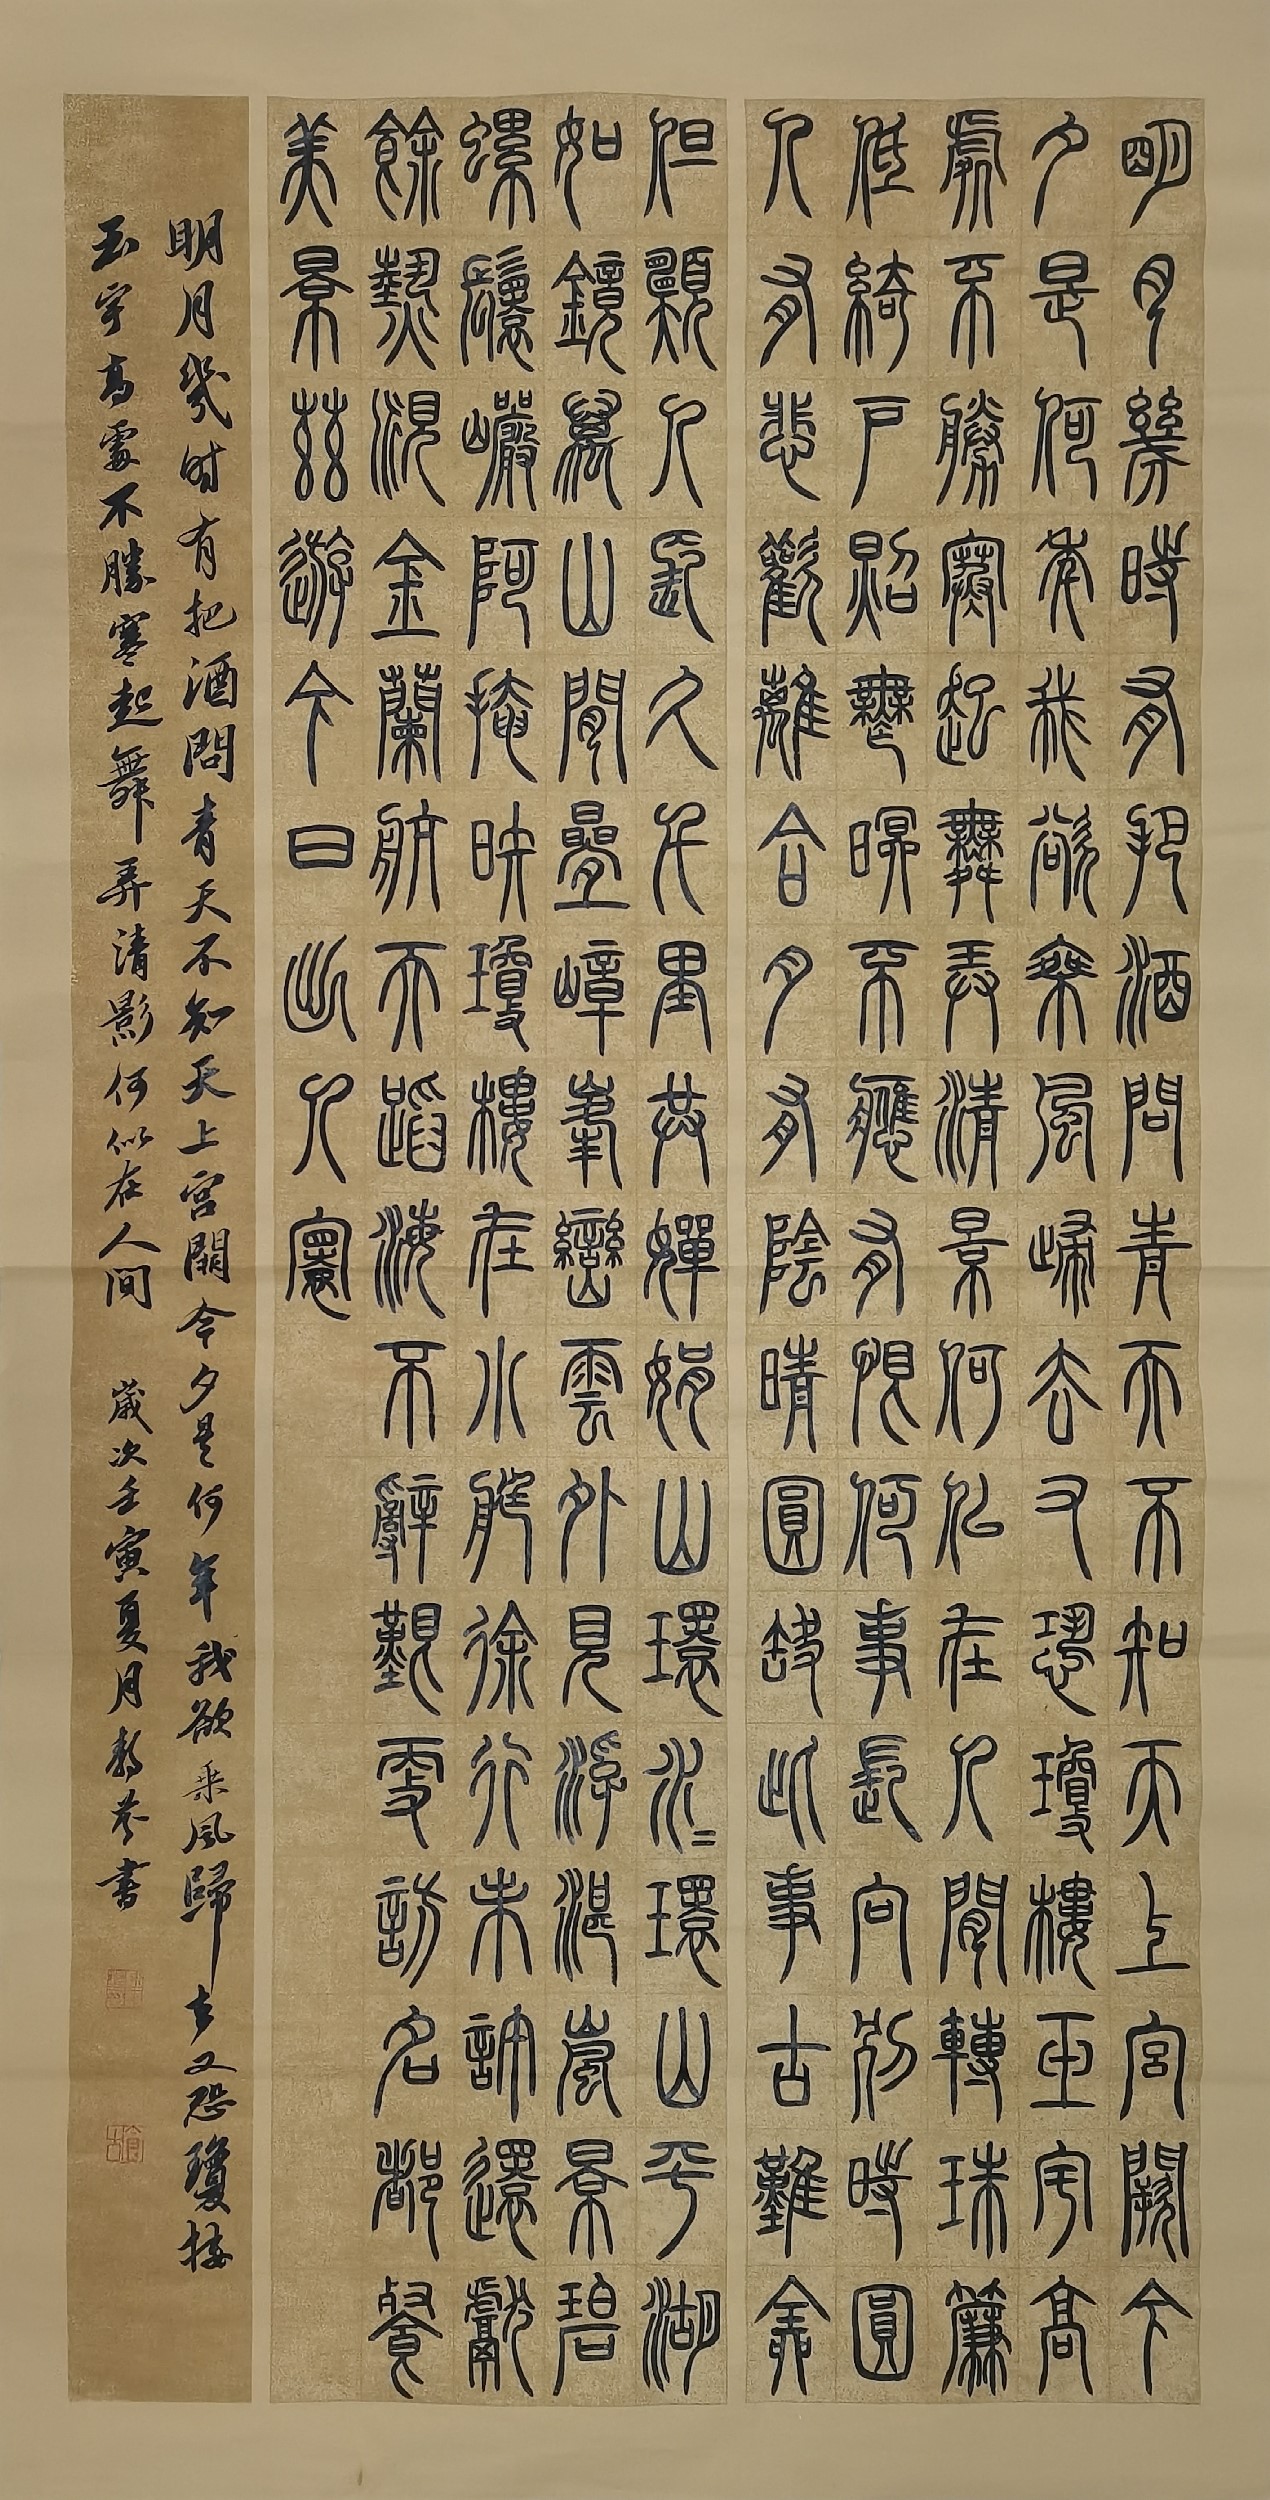 明月幾時有把酒問青天不知天上宮闕今
夕是何年我欲乘風歸去又恐瓊樓玉宇高
處不勝寒起舞弄清景何似在人間轉珠簾
低綺戶照無眠不應有恨何事長向別時圓
人有悲歡離合月有陰晴圓缺此事古難全
但願人長久千里共嬋娟山環水=環山平湖
如鏡萬山間疊嶂峯巒雲外見浮湛嵐景碧
螺鬟巖阿掩映瓊樓在水能徐行未還獻
餘熱況金蘭航天蹈海不辭艱訪名都餐
美景茲遊今日此人寰
明月幾时有把酒問青天不知天上宮闕今夕是何年我欲乘風歸去又恐瓊楼
玉宇高處不勝寒起舞弄清影何似在人间 歲次壬寅夏月書